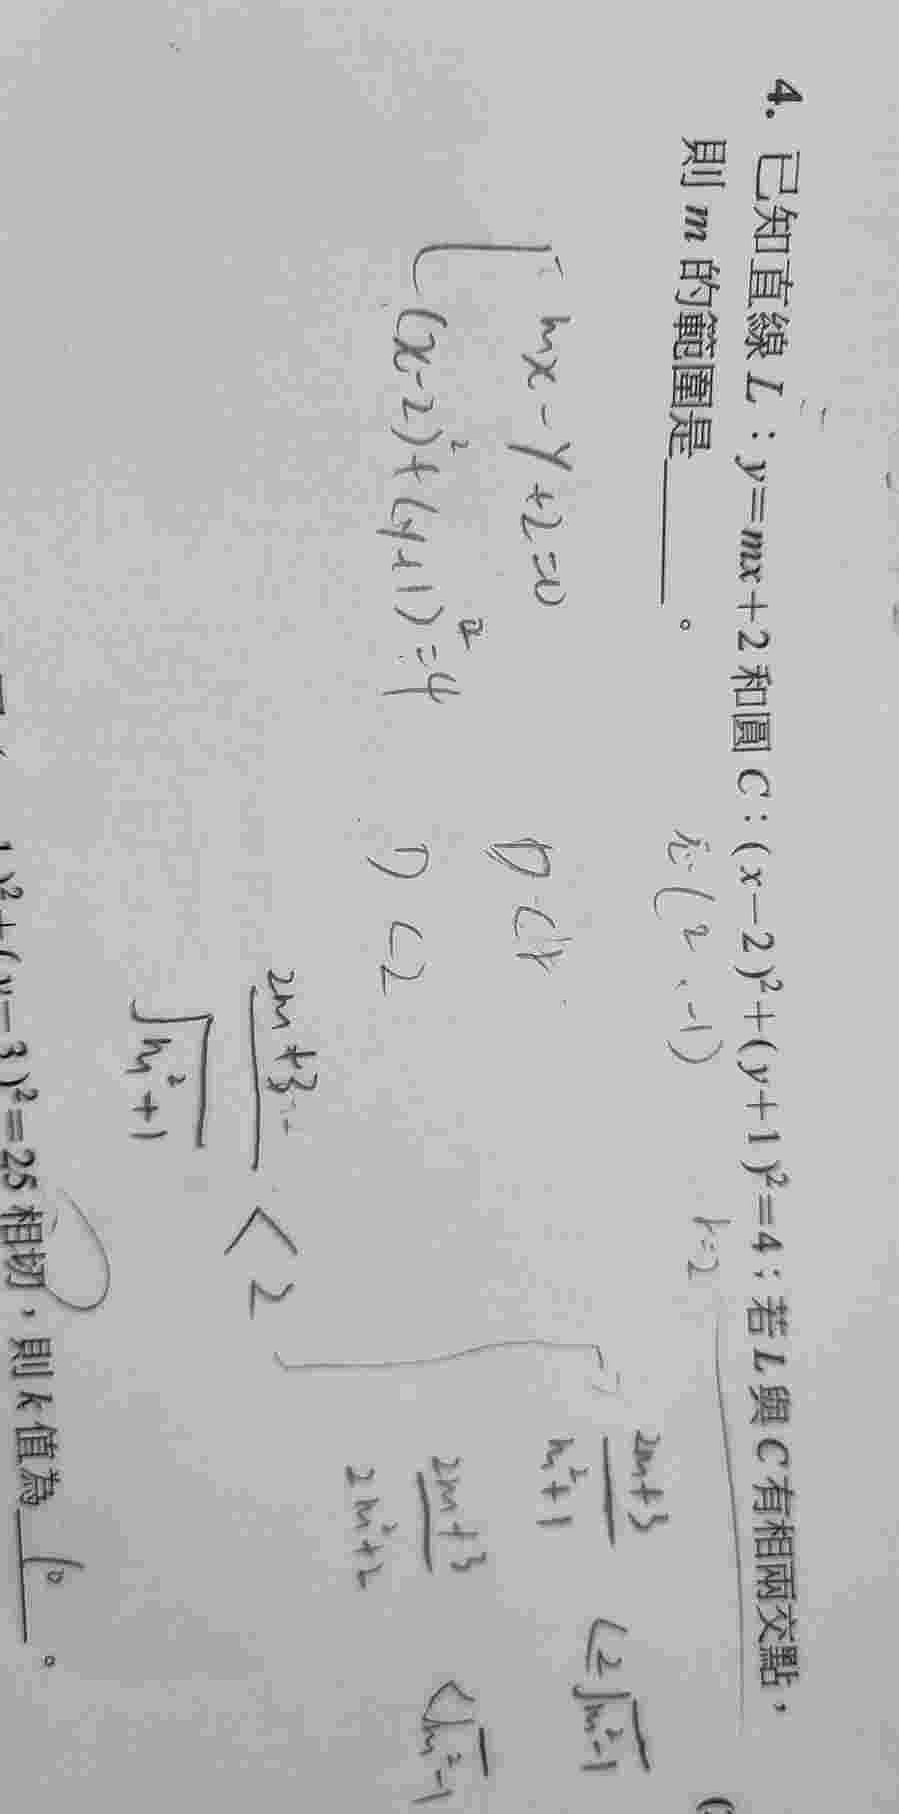 4. 已知直線 L：y=mx+2 和圓 C：(x-2)²+(y+1)²=4；若 L 與 C 有相兩交點，
則 m 的範圍是______。
(2, -1)
r=2
mx-y+2=0
(x-2)²+(y+1)²=4
D<r
D<2
2m+3
√m²+1
<2
2m+3
m²+1
<2√m²-1
2m+3
2m²+2
<√m²-1
)²=25 相切，則 k 值為 10 。